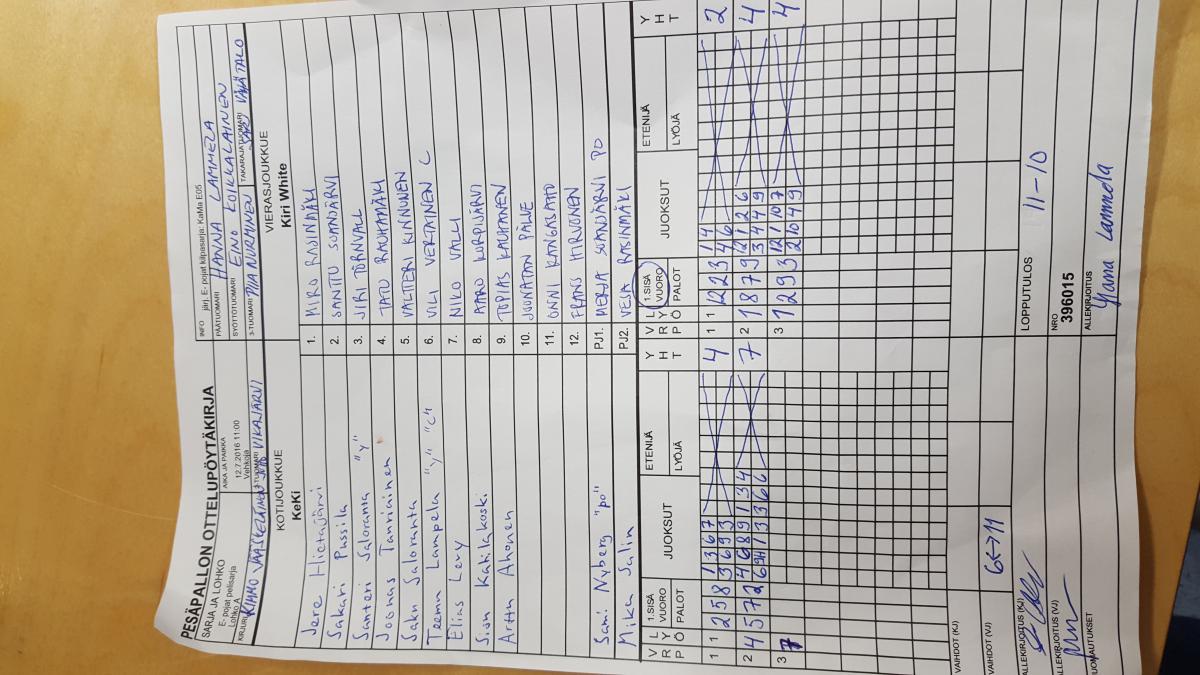 PESÄPALLON OTTELUPÖYTÄKIRJA
SARJA JA LOHKO
E- pojat pelisarja
Lohko A
AIKA JA PAIKKA
12.7.2016 11:00
Vehkoja
INFO järj. E- pojat kilpasarja: KaMa E05
PÄÄTUOMARI HANNA LAMMELA
SYÖTTÖTUOMARI EINO KOIKKALAINEN
KIRJURI KIMMO JÄÄSKELÄINEN
2-TUOMARI VIKAJÄRVI
3-TUOMARI PIIA NURMINEN
TAKARAJATUOMARI VÄHÄTALO
KOTIJOUKKUE
KeKi
VIERASJOUKKUE
Kiri White
Jere Hietajärvi 1. MIRO RASINMÄKI
Sakari Pussila 2. SANTTU SUANDÄRVI
Santeri Saloranta "y" 3. JIRI TÖRNVALL
Joonas Tanninen 4. TATU RAUHAMÄKI
Saku Saloranta 5. VALTTERI KINNUNEN
Teemu Lampela "y" "c" 6. VILI VERTAINEN C
Elias Levy 7. NIKO VALLI
Sion Kahilakoski 8. AARO KORPIJÄRVI
Arttu Ahonen 9. TOPIAS KAUHANEN
10. JUONATAN PÄLVE
11. ONNI KANGASAHO
12. FRANS HIRVONEN
Sami Nyberg "po" PJ1. MERJA SUANJÄRVI PO
Mika Salin PJ2. VESA RASINMÄKI
V R P
L Y Ö
1.SISÄ VUORO
PALOT
JUOKSUT
ETENIJÄ
LYÖJÄ
Y H T
V R P
L Y Ö
1.SISÄ VUORO
PALOT
JUOKSUT
ETENIJÄ
LYÖJÄ
Y H T
1 1 2 5 8 1 3 6 7 4
3 6 9 3
1 1 12 2 3 1 4 2
4 6
2 4 5 7 2 4 6 8 9 1 3 4 7
6 9 11 1 3 3 6 6
2 1 8 7 9 12 1 2 6 4
3 4 4 9
3 7
3 1 2 9 3 12 1 10 7 4
2 10 4 9
VAIHDOT (KJ)
VAIHDOT (VJ) 6<->11
ALLEKIRJOITUS (KJ)
LOPPUTULOS 11-10
ALLEKIRJOITUS (VJ)
NRO
396015
HUOMAUTUKSET
ALLEKIRJOITUS
Hanna Lammela